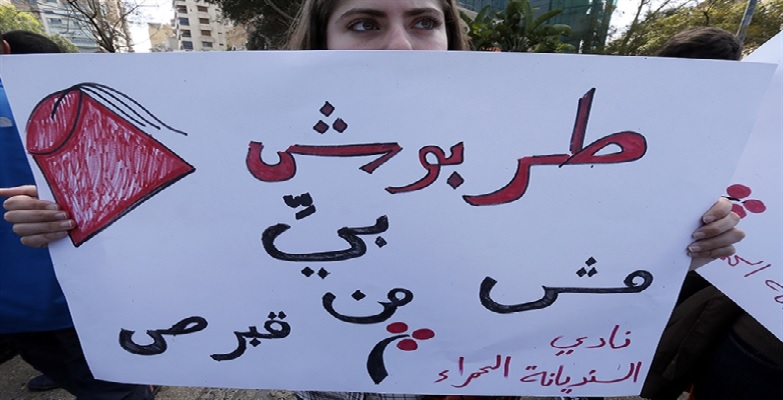 طربوش
بيّ
مش من قبرص
نادي
السنديانة الحمراء